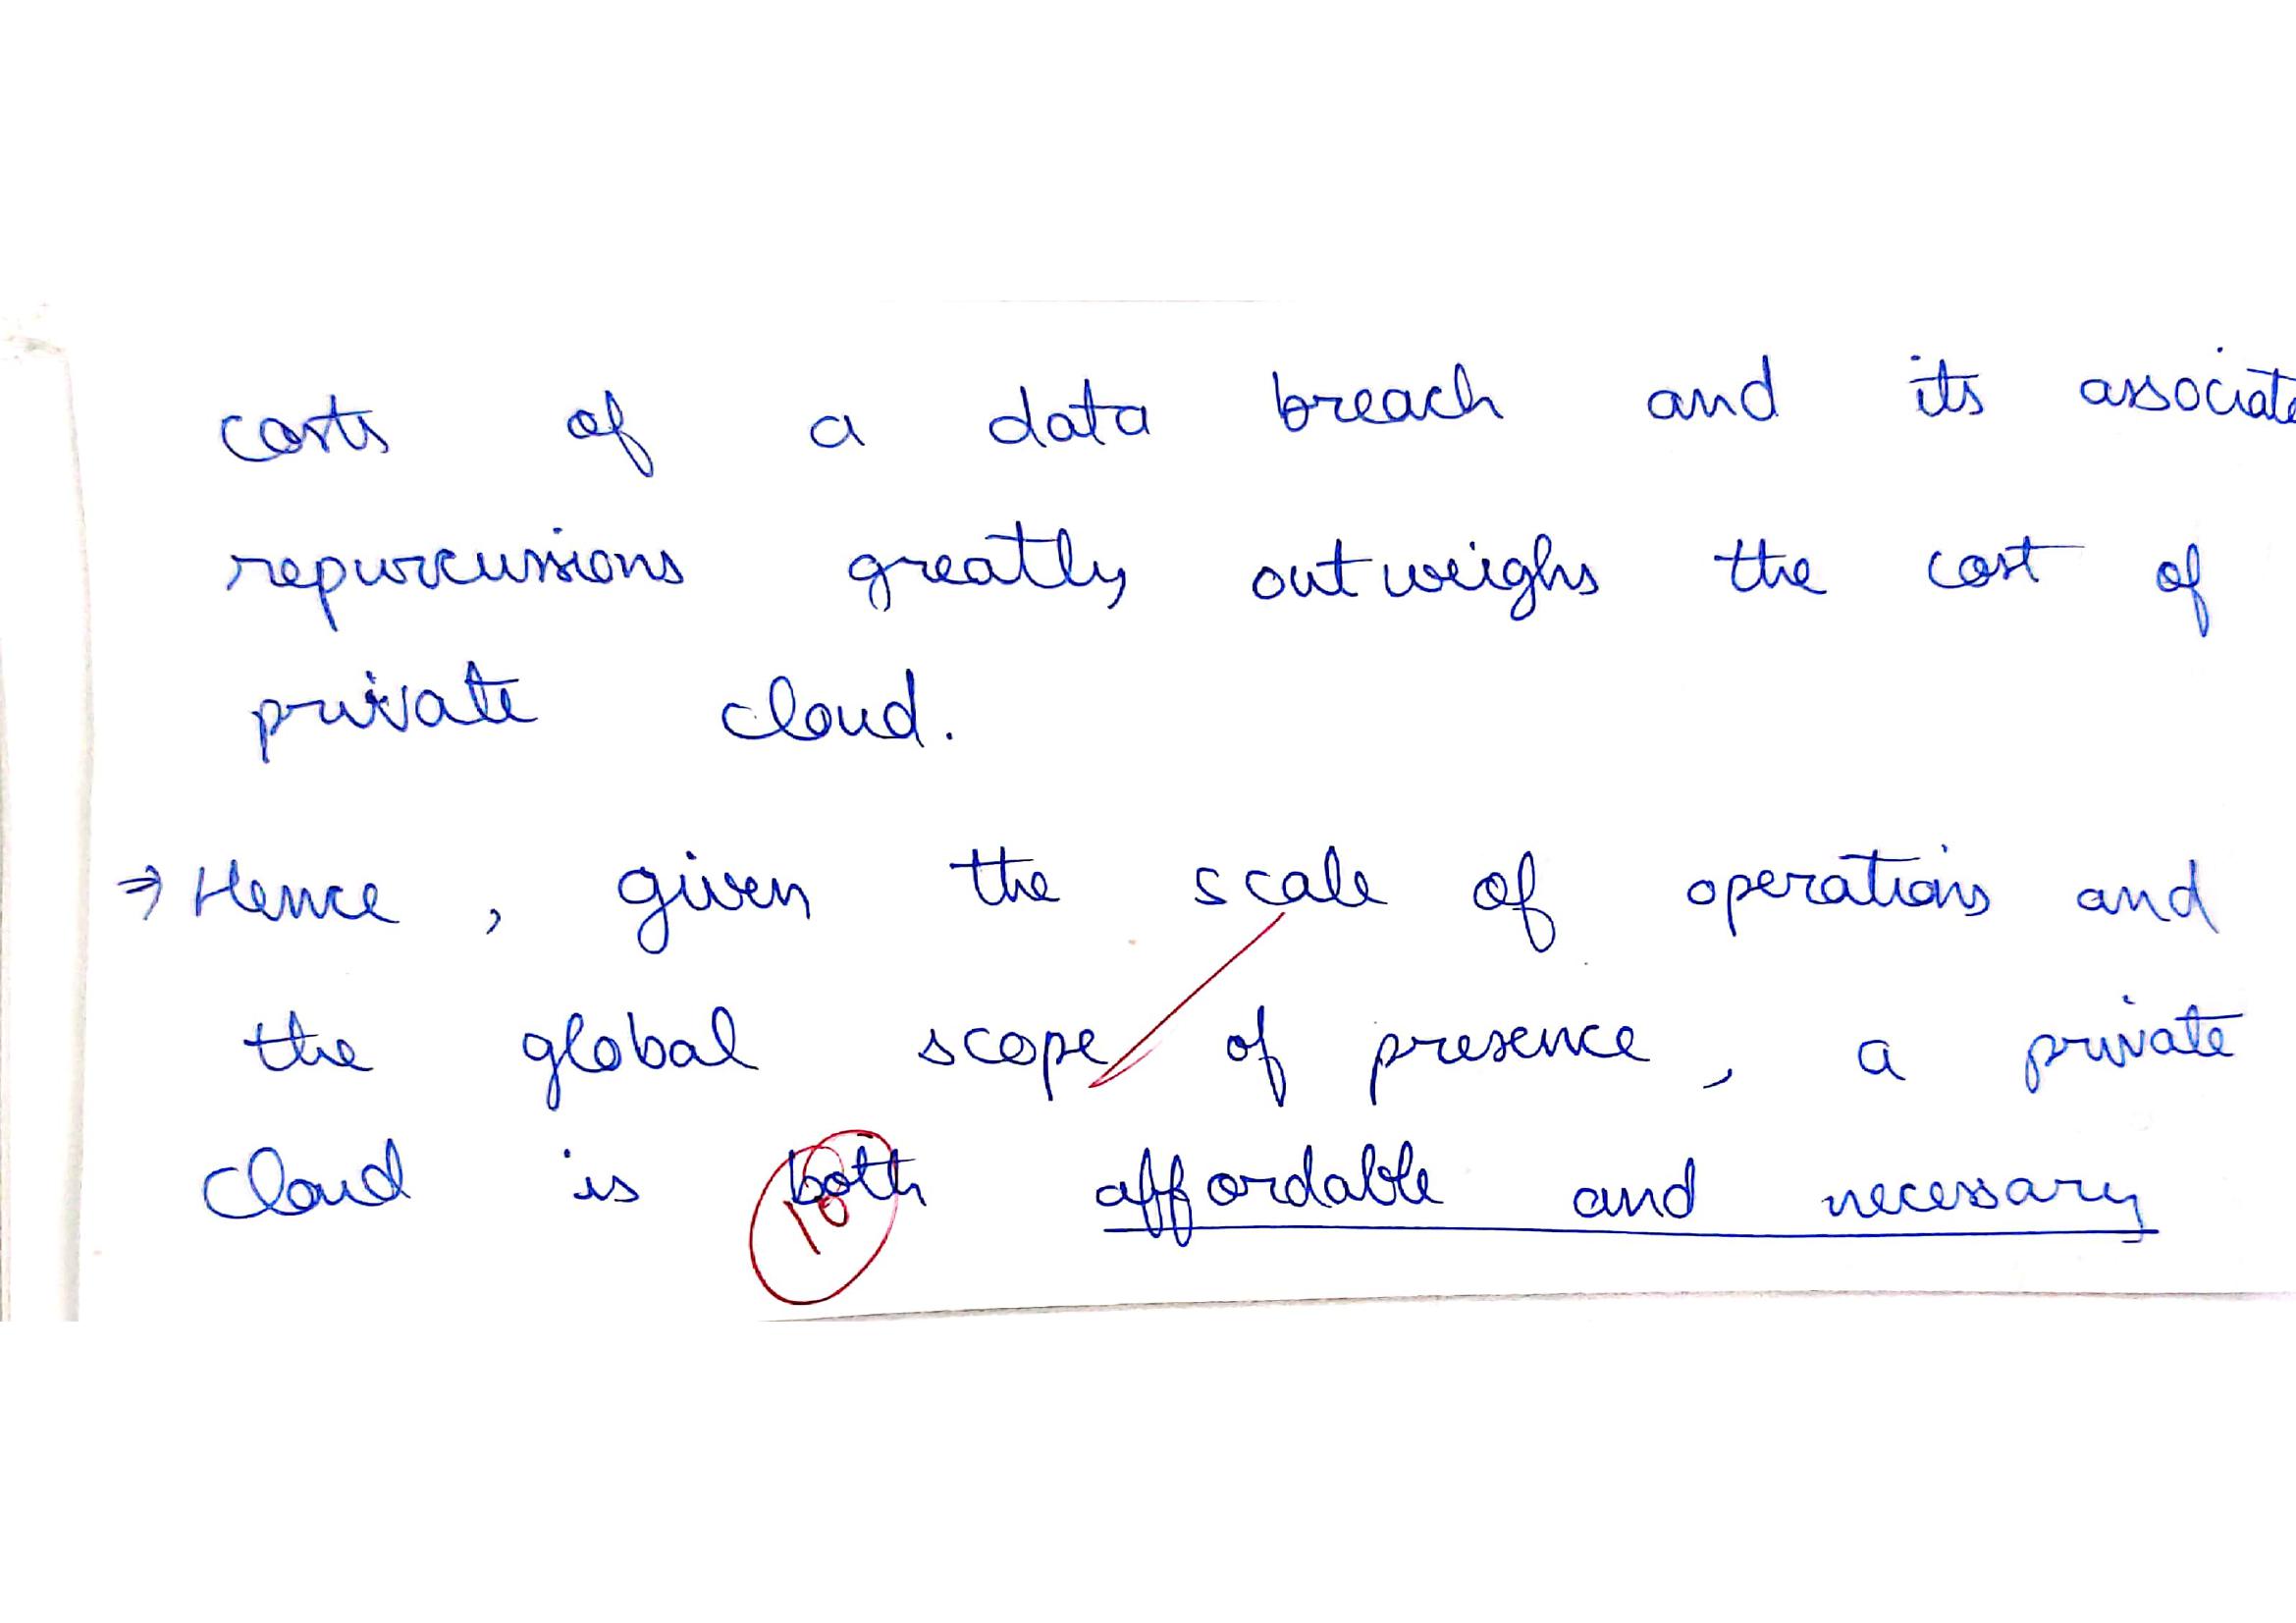 costs of a data breach and its associate
repurcussions greatly outweighs the cost of
private cloud.
⇒ Hence, given the scale of operations and
the global scope of presence, a private
cloud is both affordable and necessary
10